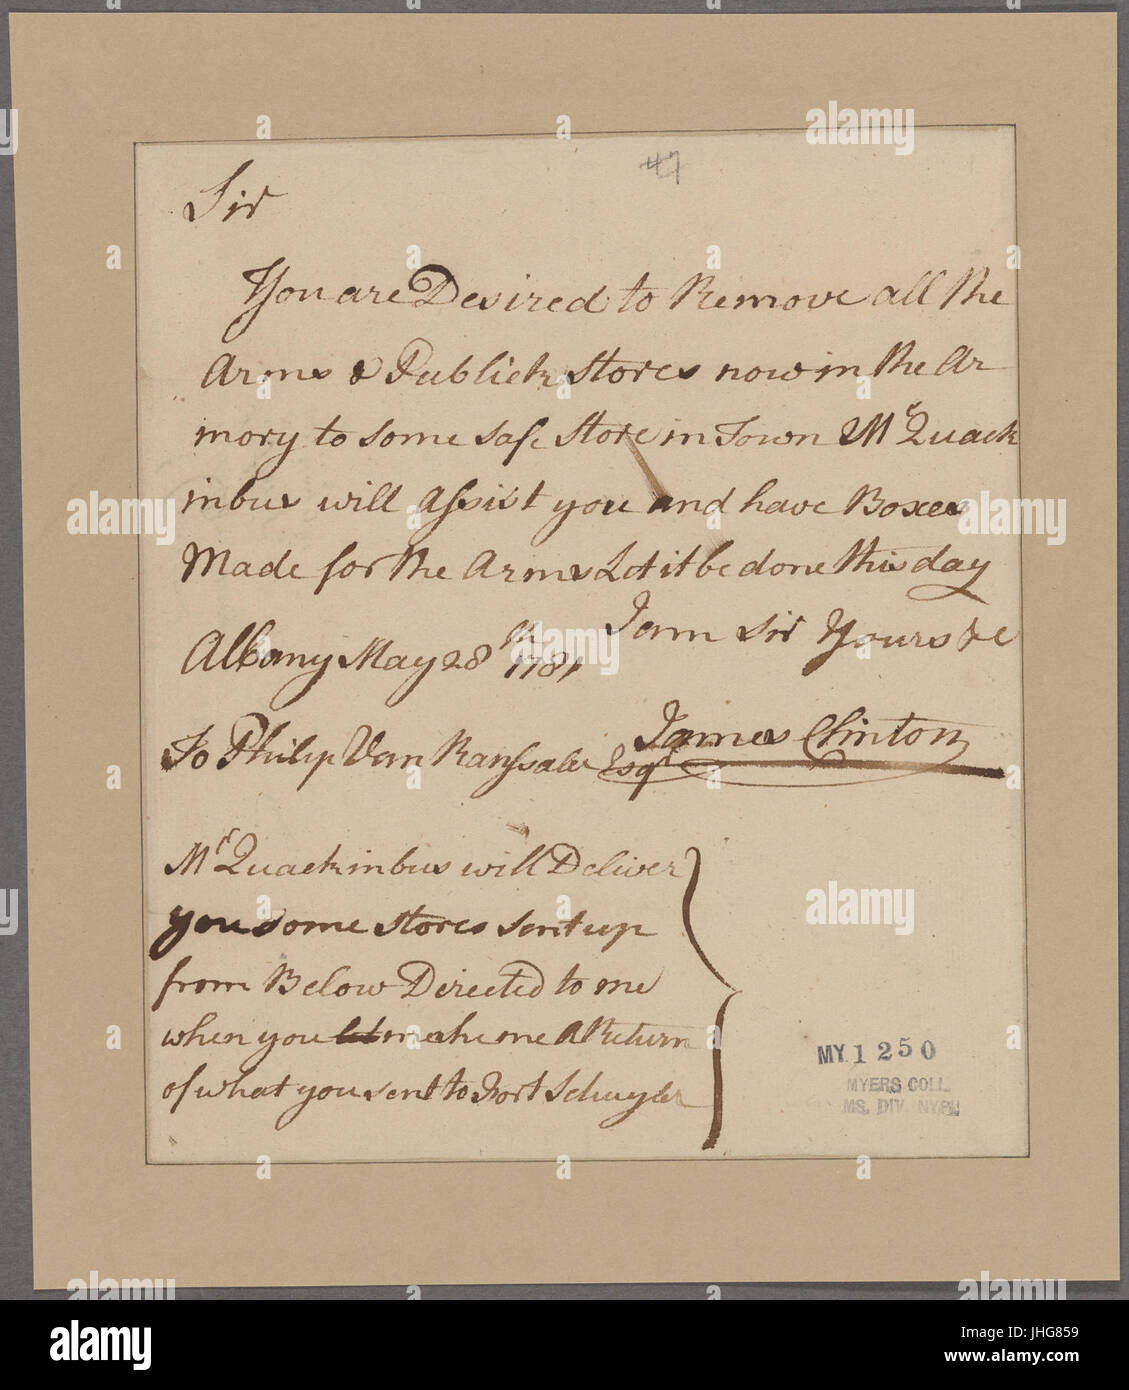 #7
Sir
You are Desired to Remove all the
Arms & Publick Stores now in the Ar
mory to some safe Store in Town Mr Quack
inbus will assist you and have Boxes
Made for the Arms Let it be done this day
I am Sir Yours &c
Albany May 28th 1781
James Clinton
To Philip Van Ranssaler Esqr
Mr Quackinbus will Deliver
you some stores sent up
from Below Directed to me
when you let make me A Return
of what you sent to Fort Schuyler
MY 1250
MYERS COLL.
MS. DIV. NYPL
alamy
Image ID: JHG859
www.alamy.com